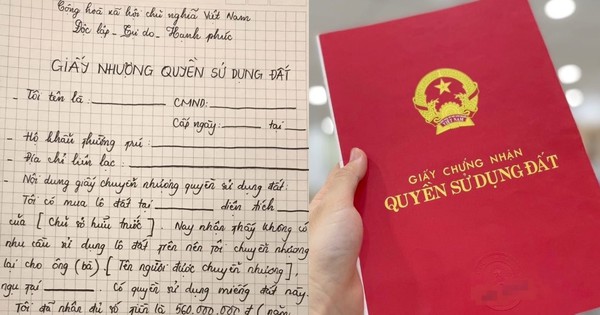 Cộng hoà xã hội chủ nghĩa Việt Nam
Độc lập - Tự do - Hạnh phúc
GIẤY NHƯỢNG QUYỀN SỬ DỤNG ĐẤT
- Tôi tên là: CMND:
Cấp ngày: tại
- Hộ khẩu thường trú:
- Địa chỉ liên lạc:
- Nội dung giấy chuyển nhượng quyền sử dụng đất:
Tôi có mua lô đất tại diện tích
của [Chủ sở hữu trước]. Nay nhận thấy không có
nhu cầu sử dụng lô đất trên nên tôi chuyển nhượng
lại cho ông (bà) [Tên người được chuyển nhượng],
ngụ tại . Có quyền sử dụng miếng đất này.
Tôi đã nhận đủ số tiền là 560.000.000 đ (năm
VIỆT NAM
GIẤY CHỨNG NHẬN
QUYỀN SỬ DỤNG ĐẤT